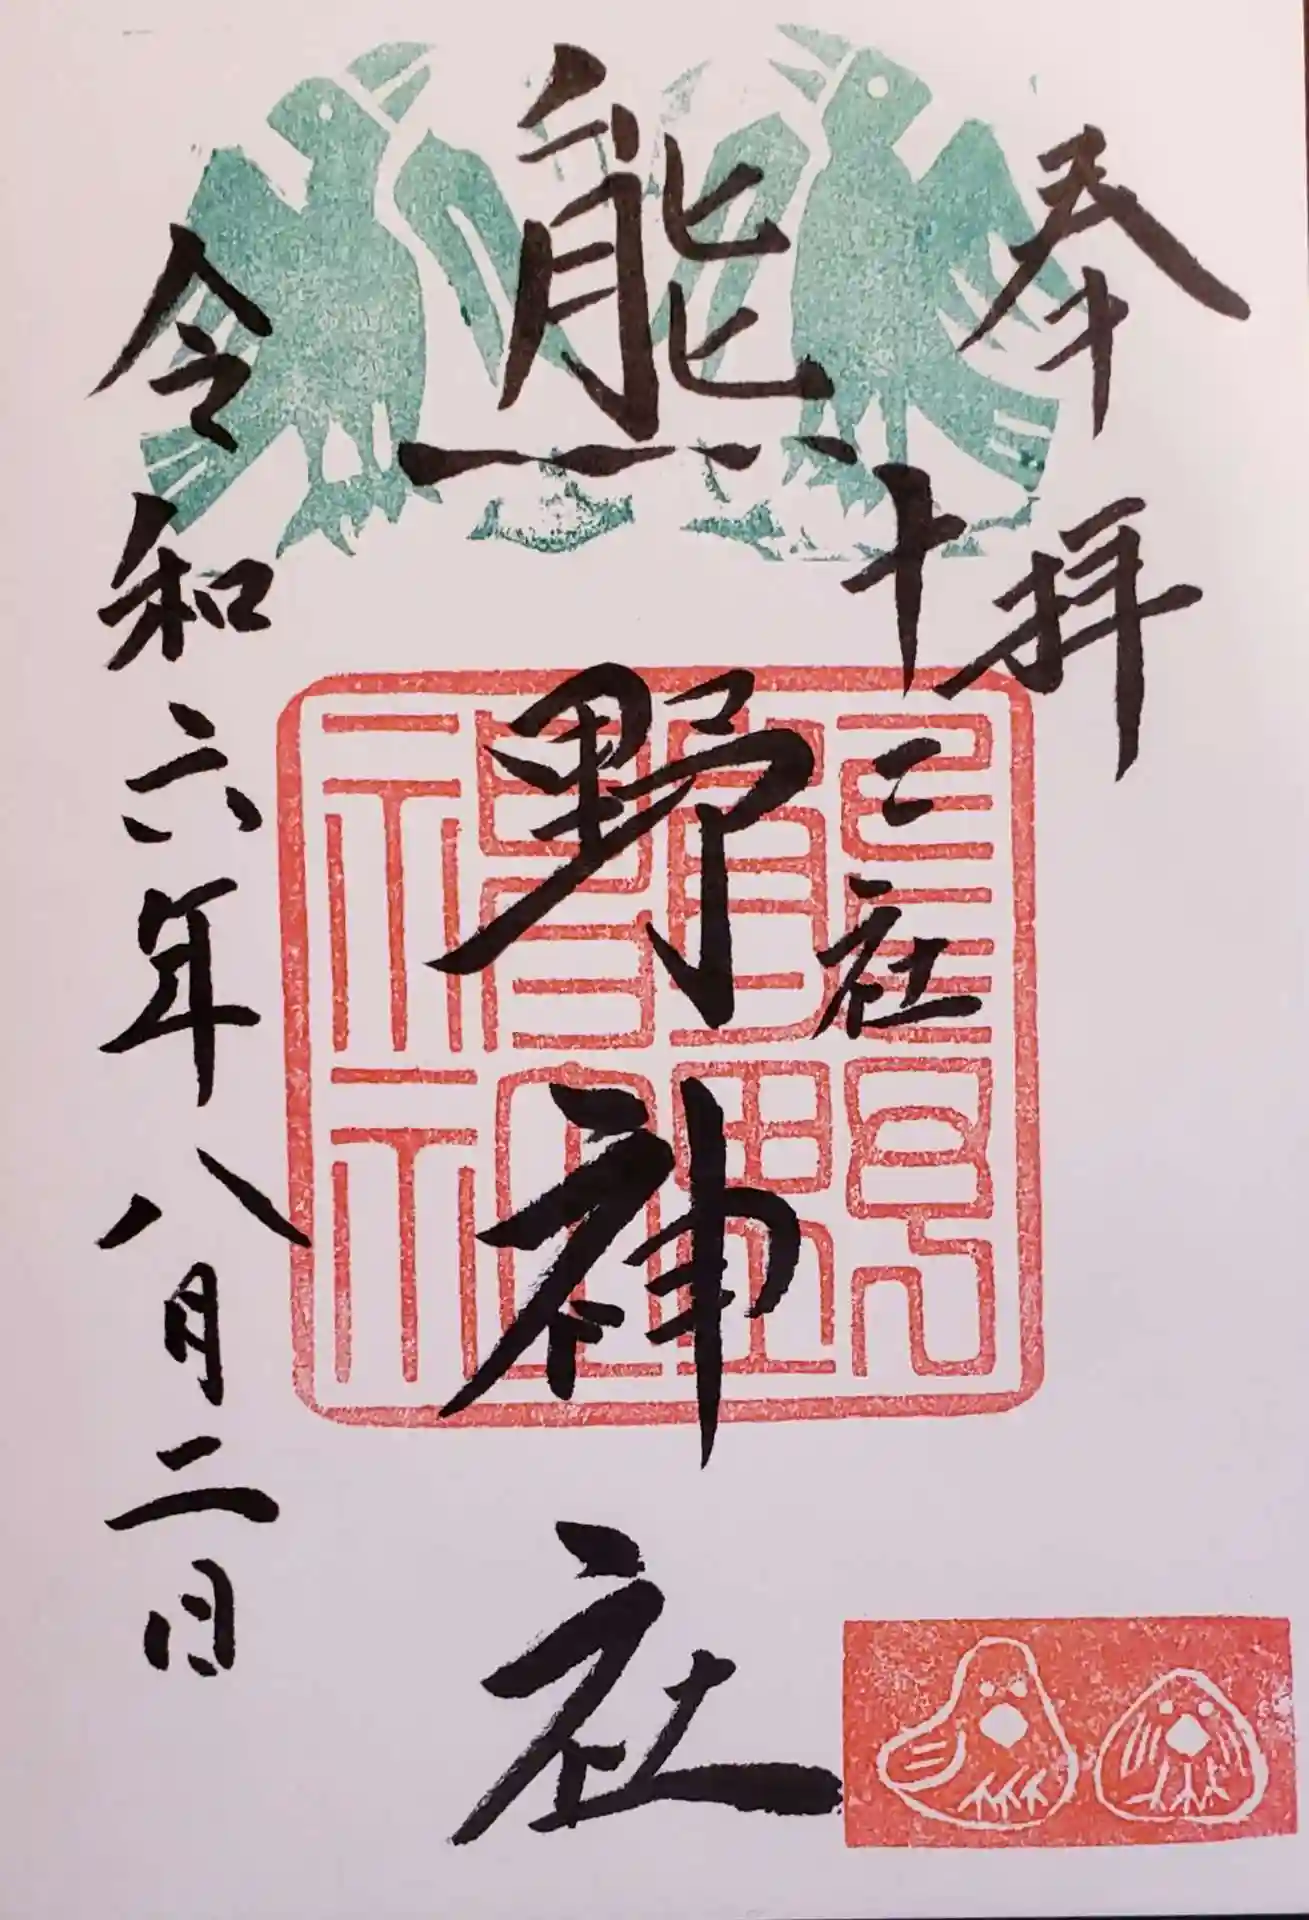 奉拝
十二社
熊野神社
令和六年八月二日